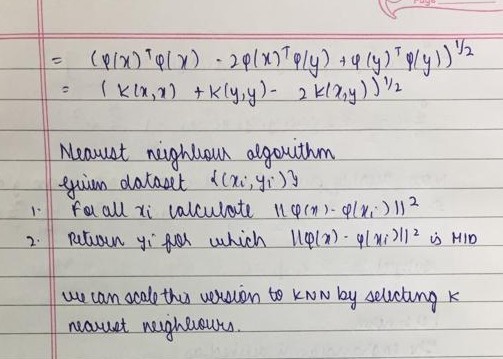 Page
= (φ(x)ᵀφ(x) - 2φ(x)ᵀφ(y) + φ(y)ᵀφ(y))^1/2
= (K(x,x) + K(y,y) - 2K(x,y))^1/2
Nearest neighbour algorithm
Given dataset {(xi, yi)}
1. For all xi calculate ||φ(x) - φ(xi)||²
2. Return yi for which ||φ(x) - φ(xi)||² is MIN
we can scale this version to KNN by selecting K
nearest neighbours.